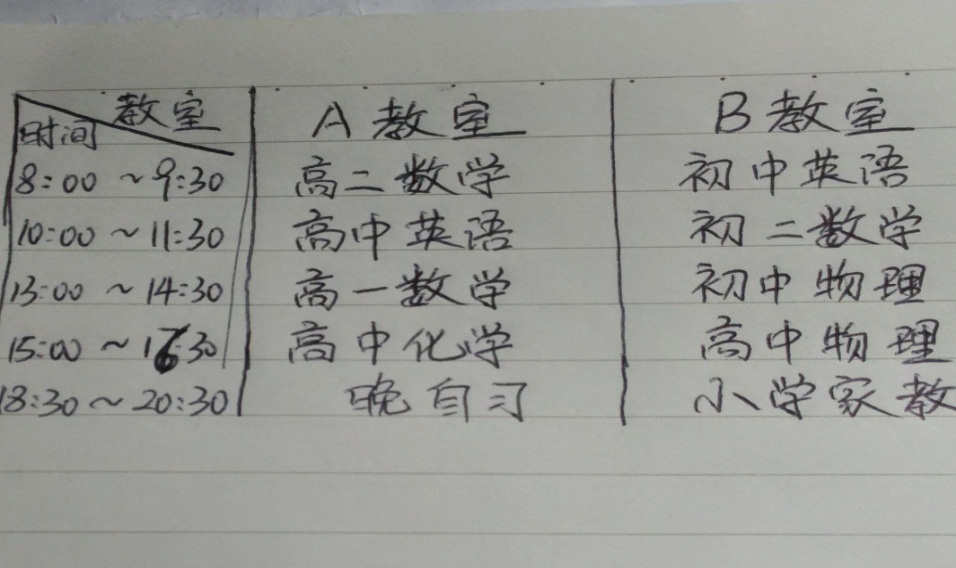 教室 A教室 B教室
时间
8:00 ~ 9:30 高二数学 初中英语
10:00 ~ 11:30 高中英语 初二数学
13:00 ~ 14:30 高一数学 初中物理
15:00 ~ 16:30 高中化学 高中物理
18:30 ~ 20:30 晚自习 小学家教